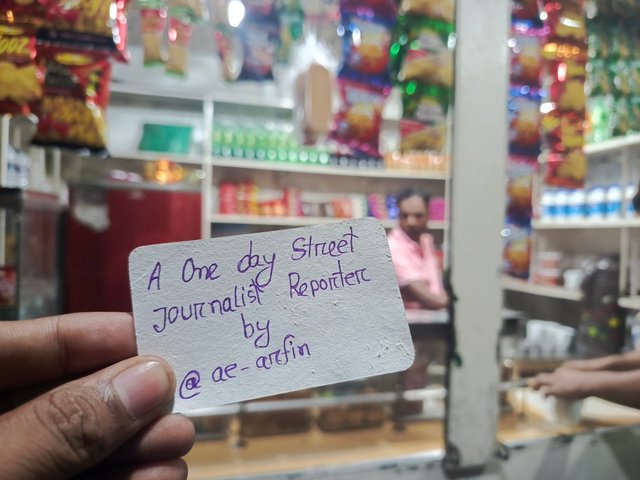 A One day Street
Journalist Reporter
by
@ ae-arfin